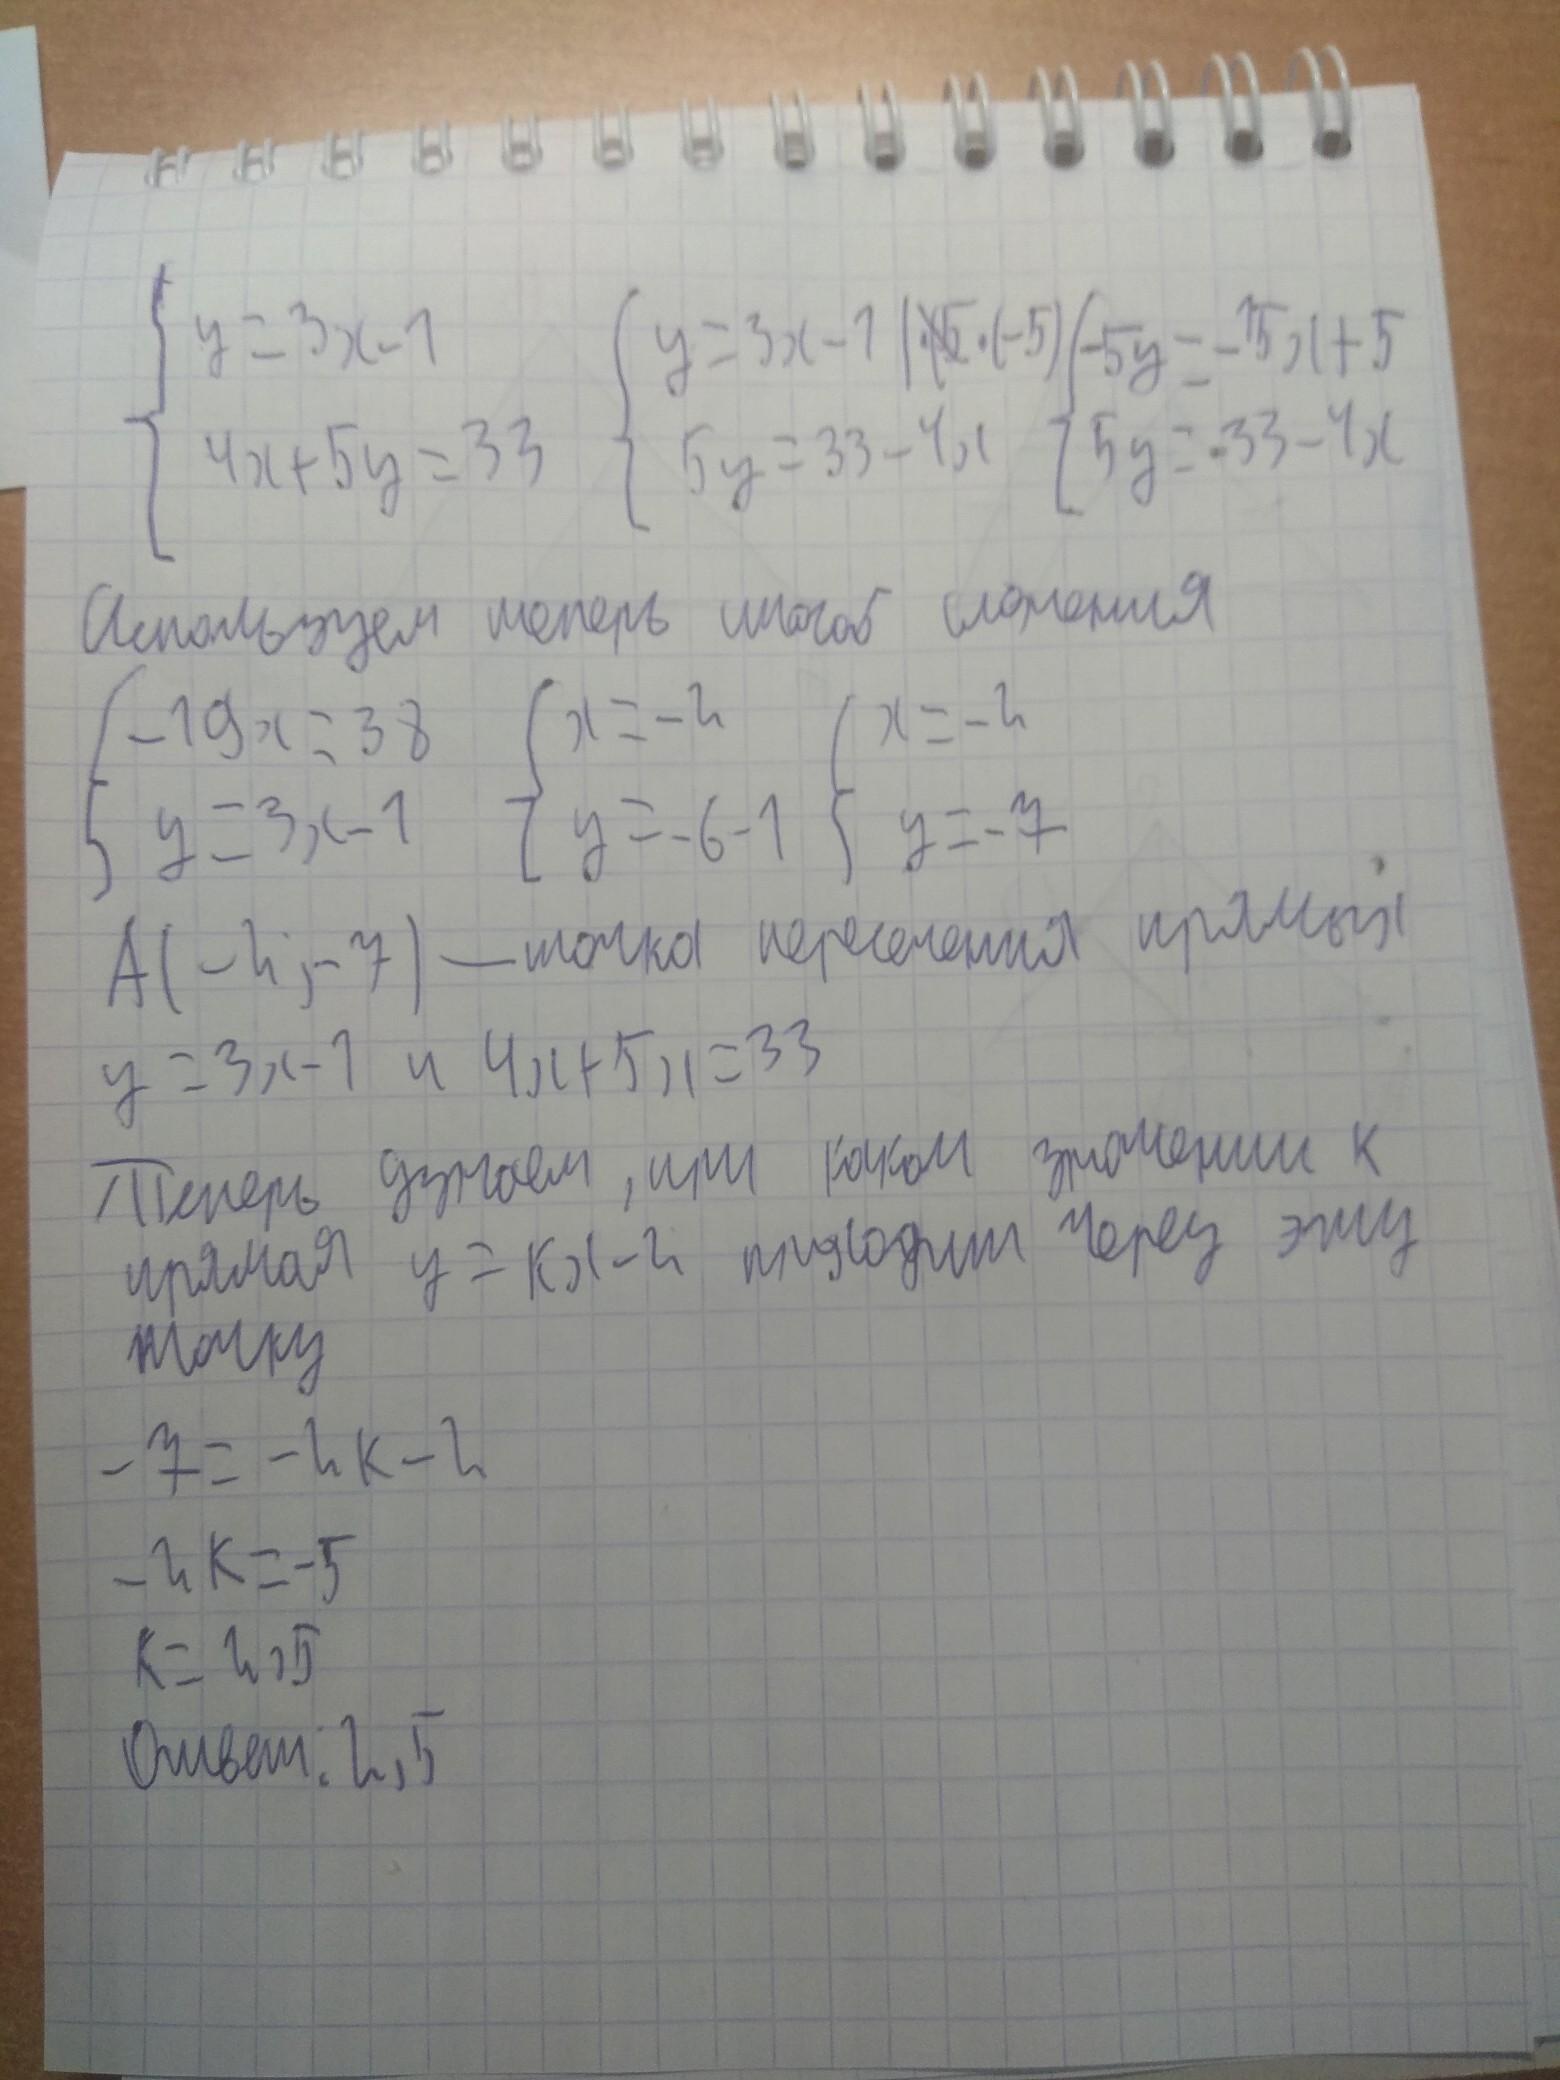 y=3x-1 y=3x-1 |·(-5) -5y=-15x+5
4x+5y=33 5y=33-4x 5y=33-4x
Используем теперь способ сложения
-19x=38 x=-2 x=-2
y=3x-1 y=-6-1 y=-7
A(-2;-7) — точка пересечения прямых
y=3x-1 и 4x+5x=33
Теперь узнаем, при каком значении к
прямая y=кx-2 проходит через эту
точку
-7=-2к-2
-2к=-5
к=2,5
Ответ: 2,5